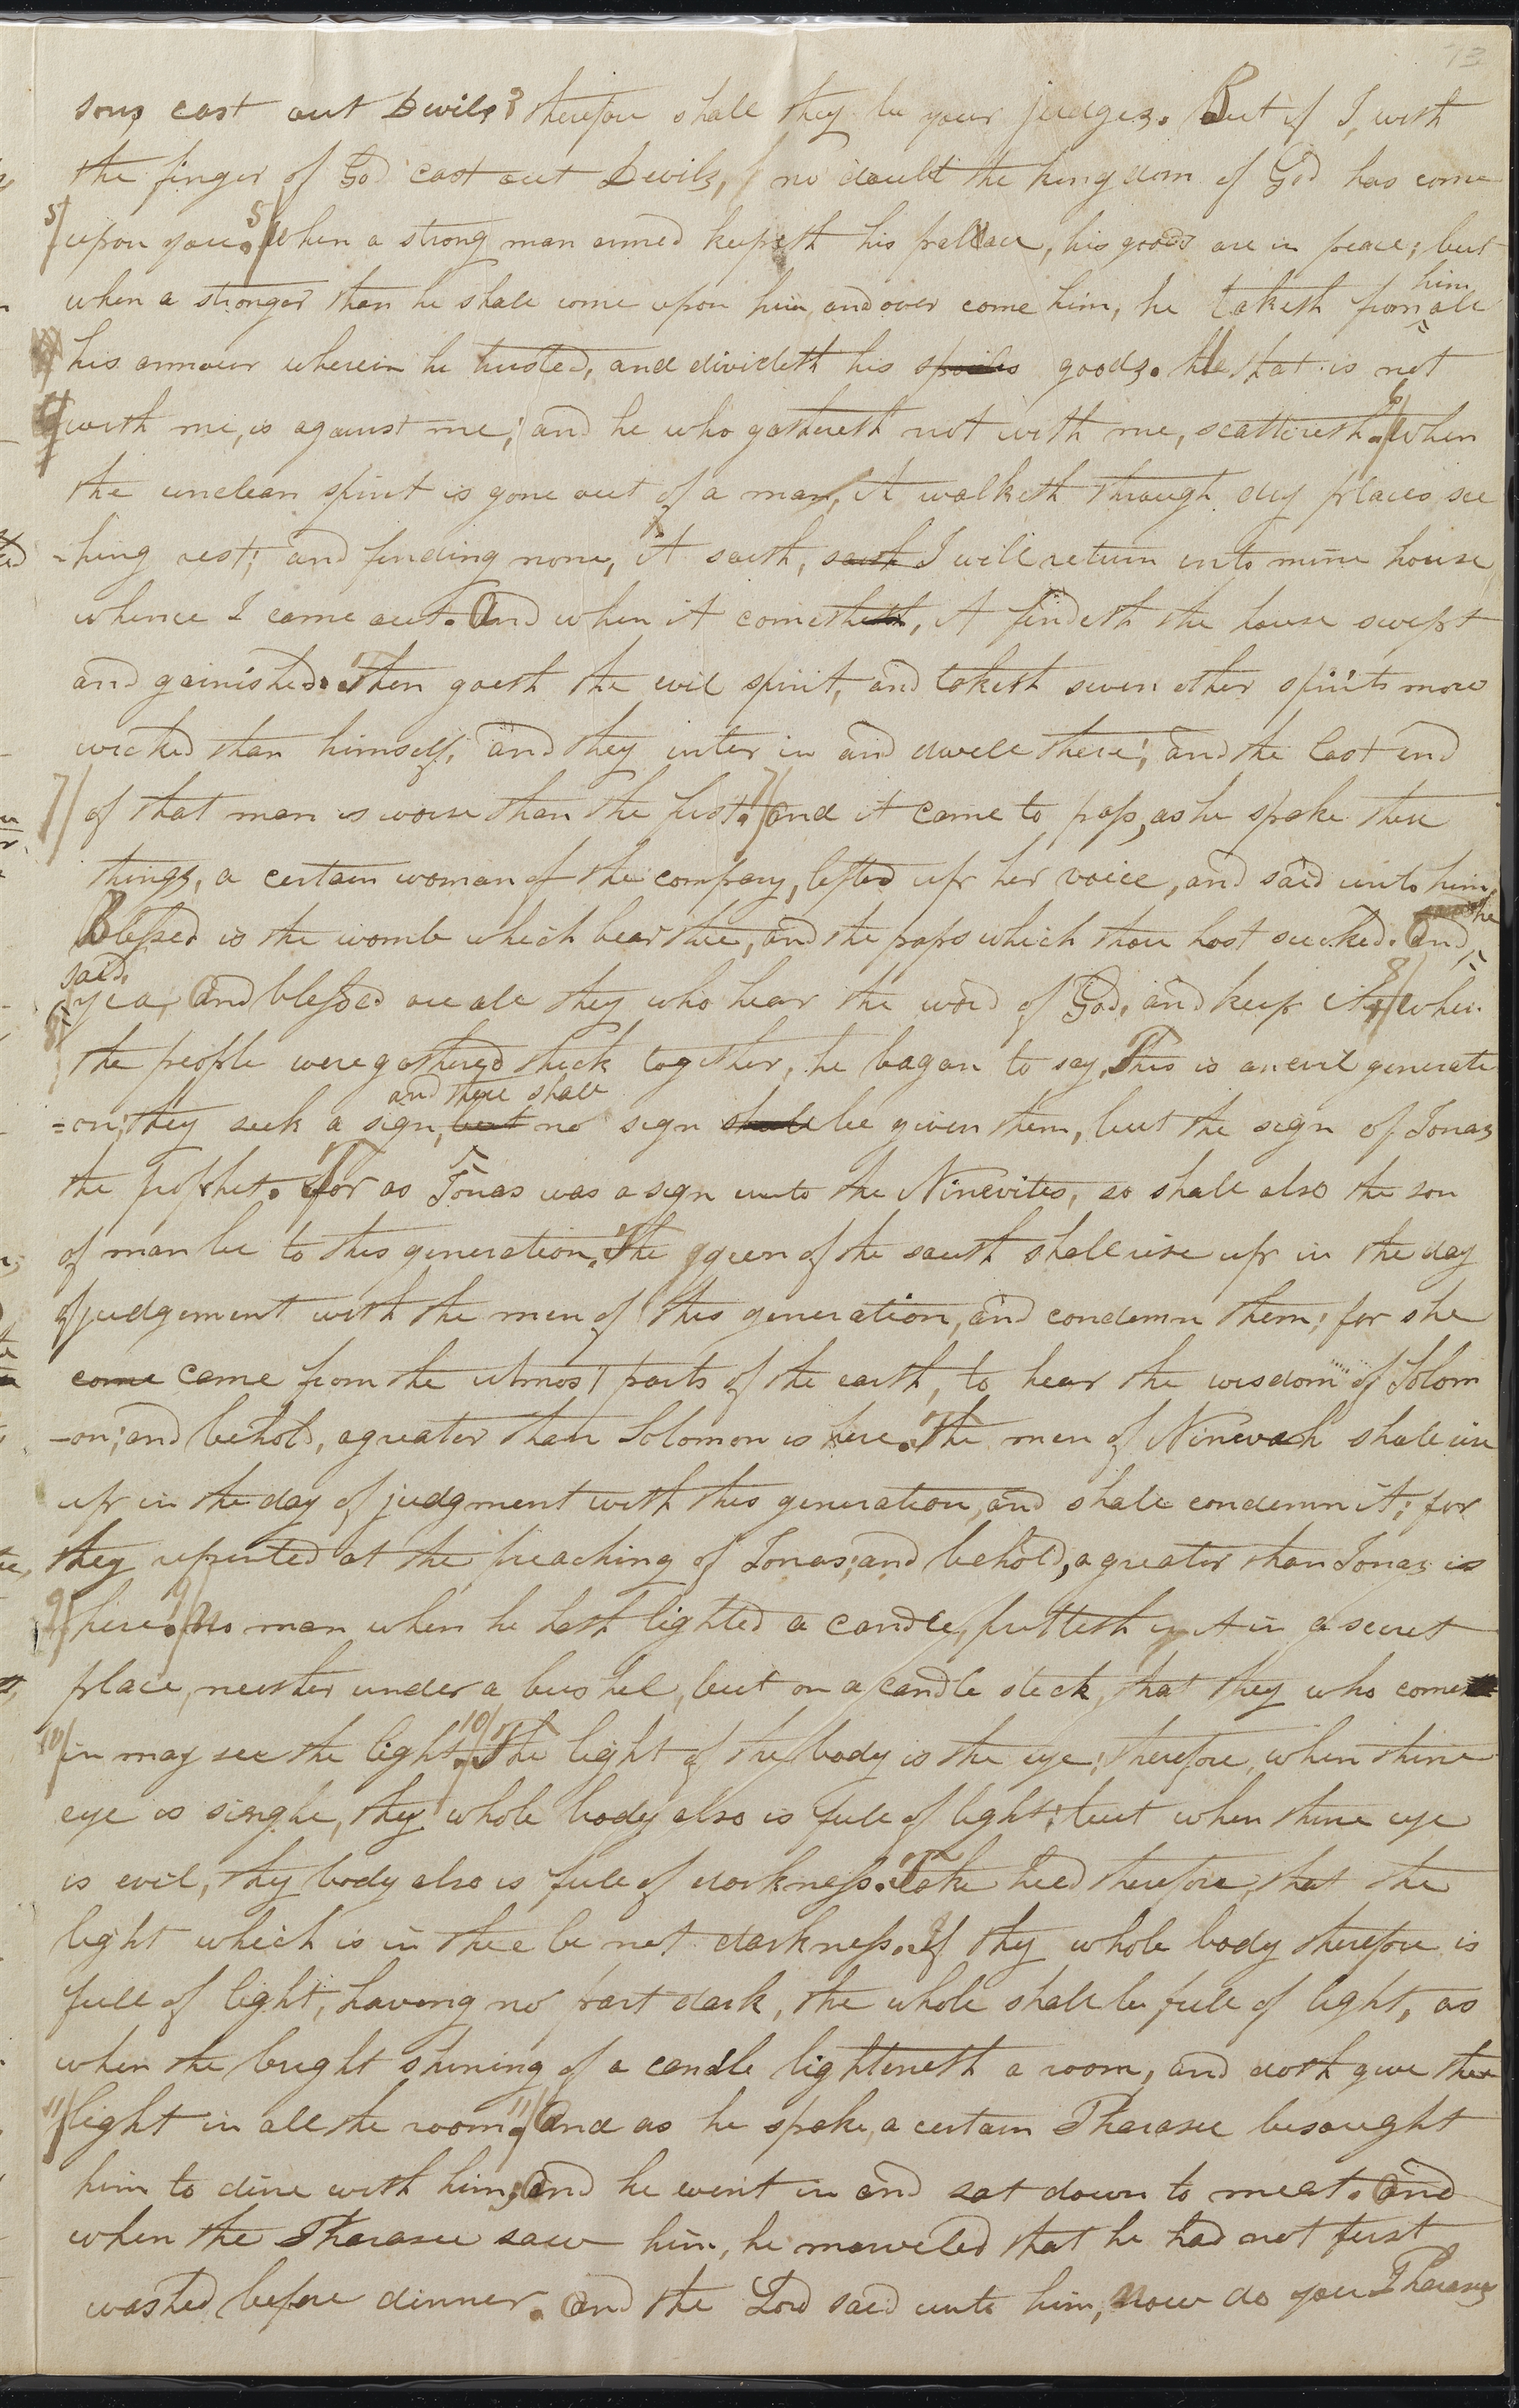 73
sons cast out Devils? therefore shall they be your judges. But if I, with
the finger of God cast out Devils, no doubt the kingdom of God has come
5/ upon you. 5/ When a strong man armed keepeth his pallace, his goods are in peace; but
when a stronger than he shall come upon him, and over come him, he taketh from him all
his armour wherein he trusted, and divideth his spoiles goods. He that is not
with me, is against me; and he who gathereth not with me, scattereth. 6/ When
the unclean spirit is gone out of a man, it walketh through dry places, see
-king rest; and finding none, it saith, saith I will return unto mine house
whence I came out. And when it cometh, it findeth the house swept
and garnished. Then goeth the evil spirit, and taketh seven other spirits more
wicked than himself, and they inter in and dwell there; and the last end
7/ of that man is worse than the first. 7/ and it came to pass, as he spoke these
things, a certain woman of the company, lifted up her voice, and said unto him,
Blessed is the womb which bear thee, and the paps which thou hast sucked. And he
said,
yea, and blessed are all they who hear the word of God, and keep it. 8/ when
8/ the people were gathered thick together, he began to say, This is an evil generati
=on; they seek a sign, but and there shall no sign shall be given them, but the sign of Jonas
the prophet. For as Jonas was a sign unto the Ninevites, so shall also the son
of man be to this generation. The queen of the south shall rise up in the day
of judgement with the men of this generation, and condemn them; for she
come came from the utmost parts of the earth, to hear the wisdom of Solom
-on; and behold, a greater than Solomon is here. The men of Ninevah shall rise
up in the day of judgment with this generation, and shall condemn it; for
they repented at the preaching of Jonas; and behold, a greater than Jonas is
9/ here. 9/ No man when he hath lighted a candle, putteth it in a secret
place, neither under a bushel, but on a candle stick, that they who come
10/ in may see the light. 10/ The light of the body is the eye; therefore, when thine
eye is single, thy whole body also is full of light; but when thine eye
is evil, thy body also is full of darkness. Take heed therefore, that the
light which is in thee be not darkness. If thy whole body therefore is
full of light, having no part dark, the whole shall be full of light, as
when the bright shining of a candle lighteneth a room, and doth give the
11/ light in all the room. 11/ And as he spoke, a certain Pharasee besought
him to dine with him; and he went in and sat down to meet. And
when the Pharasee saw him, he marveled that he had not first
washed before dinner. And the Lord said unto him, Now do you Pharasees